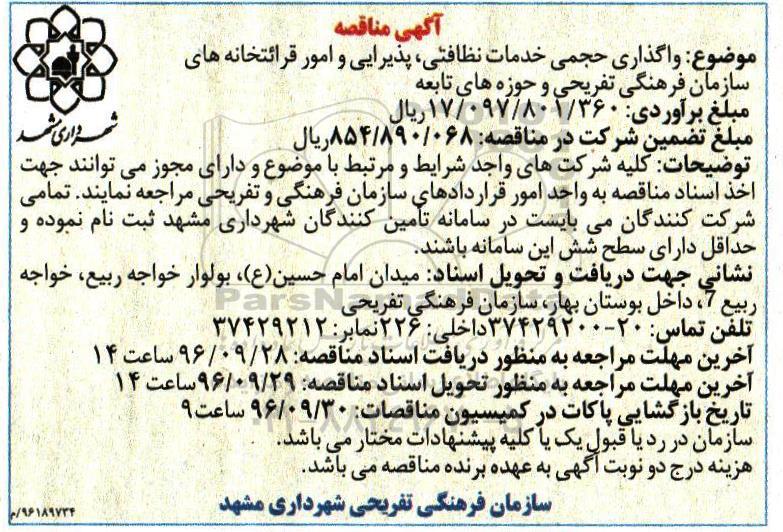 آگهی مناقصه
شهرداری مشهد
موضوع: واگذاری حجمی خدمات نظافتی، پذیرایی و امور قرائتخانه های
سازمان فرهنگی تفریحی و حوزه های تابعه
مبلغ برآوردی: ۱۷/۰۹۷/۸۰۱/۳۶۰ریال
مبلغ تضمین شرکت در مناقصه: ۸۵۴/۸۹۰/۰۶۸ریال
توضیحات: کلیه شرکت های واجد شرایط و مرتبط با موضوع و دارای مجوز می توانند جهت
اخذ اسناد مناقصه به واحد امور قراردادهای سازمان فرهنگی و تفریحی مراجعه نمایند. تمامی
شرکت کنندگان می بایست در سامانه تأمین کنندگان شهرداری مشهد ثبت نام نموده و
حداقل دارای سطح شش این سامانه باشند.
نشانی جهت دریافت و تحویل اسناد: میدان امام حسین(ع)، بولوار خواجه ربیع، خواجه
ربیع 7، داخل بوستان بهار، سازمان فرهنگی تفریحی
ParsNamadData
تلفن تماس: ۲۰-۳۷۴۲۹۲۰۰داخلی: ۲۲۶نمابر: ۳۷۴۲۹۲۱۲
آخرین مهلت مراجعه به منظور دریافت اسناد مناقصه: ۹۶/۰۹/۲۸ ساعت ۱۴
آخرین مهلت مراجعه به منظور تحویل اسناد مناقصه: ۹۶/۰۹/۲۹ساعت ۱۴
تاریخ بازگشایی پاکات در کمیسیون مناقصات: ۹۶/۰۹/۳۰ ساعت۹
سازمان در رد یا قبول یک یا کلیه پیشنهادات مختار می باشد.
هزینه درج دو نوبت آگهی به عهده برنده مناقصه می باشد.
سازمان فرهنگی تفریحی شهرداری مشهد
۹۶۱۸۹۷۳۴/م